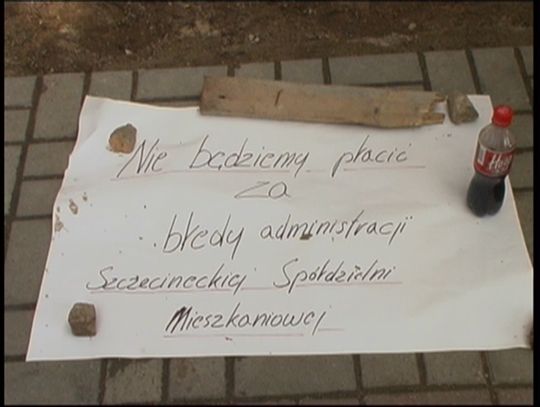 Nie będziemy płacić
za
błędy administracji
Szczecineckiej Spółdzielni
Mieszkaniowej